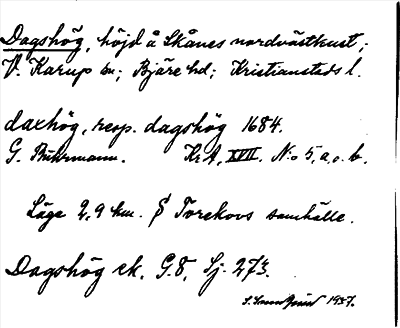 Dagshög, höjd å Skånes nordvästkust;
V. Karup sn; Bjäre hd; Kristianstads l.
daxhög, resp. dagshög 1684.
G. Buhrmann. KrA, XVII. N:o 5, a. o. b.
Läge 2,9 km. S Torekovs samhälle.
Dagshög ek. G.8. Sj. 273.
1937.